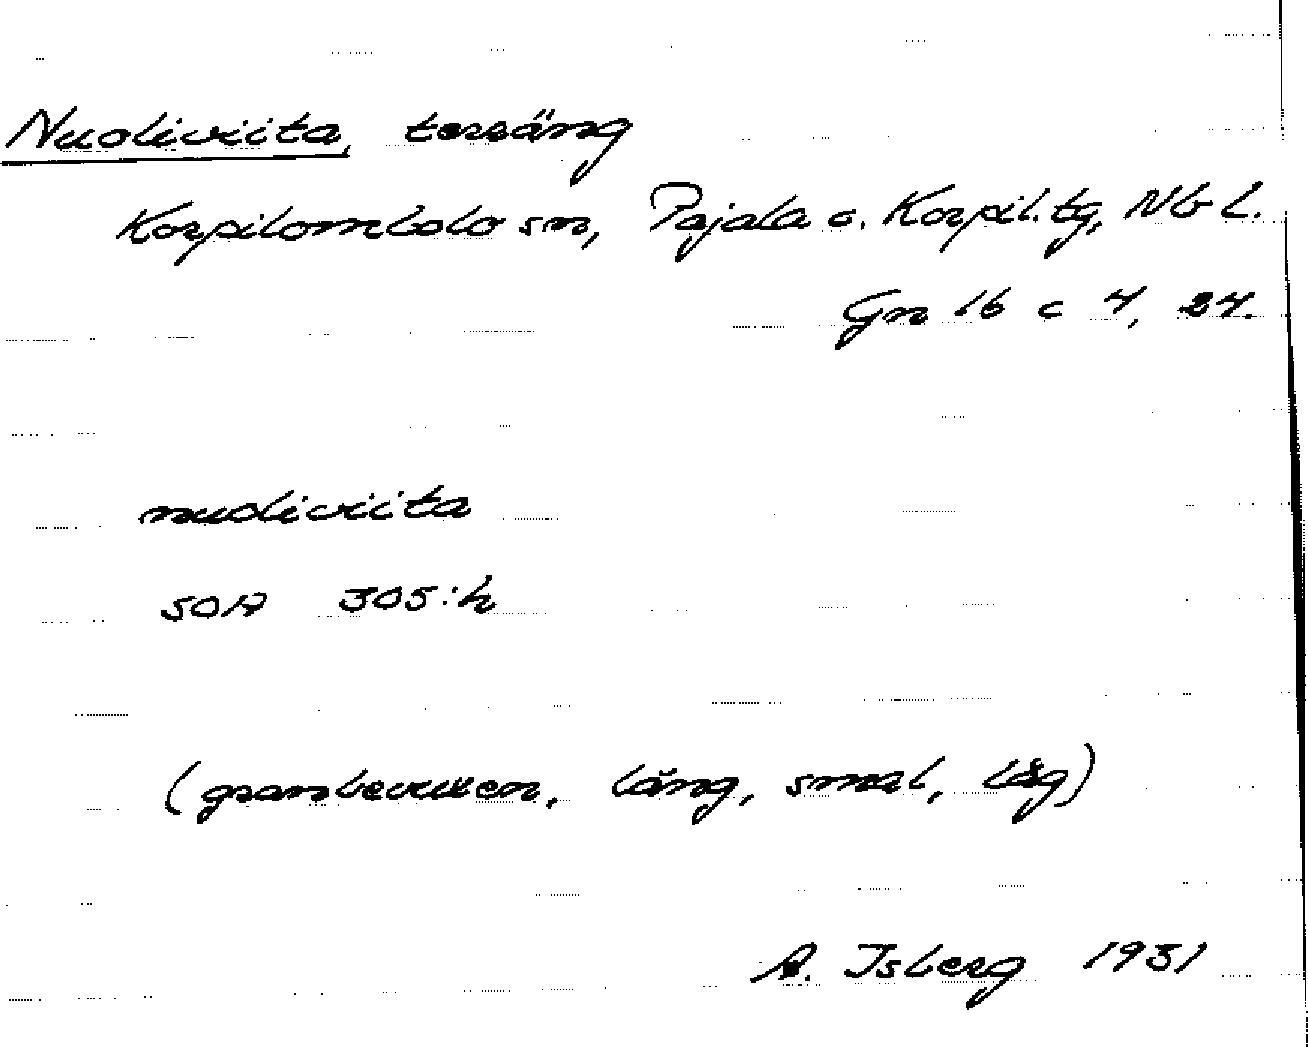 Nuoliviita, terräng
Korpilombolo sn, Pajala o. Korpil. tg, Nb L.
Gn 16 c 4, 24.
nuoliviita
SOA 305:h
(granbevuxen, lång, smal, låg)
A. Isberg 1931